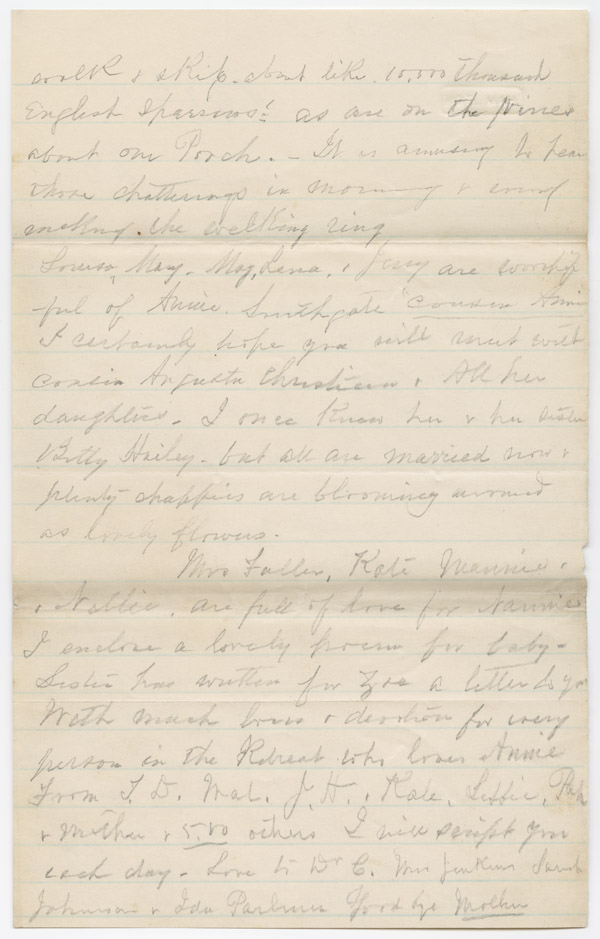 walk & skip. about like 10,000 thousand
English Sparrows! as are on the Vines
about our Porch. - It is amusing to hear
those chatterings in morning &
making the welking ring
Louisa, May. Mag, Lena, & are worship
ful of Annie. Southgate "cousin Annie
I certainly hope you will meet with
cousin Augusta Christian & All her
daughters - I once Knew her & her sister
Betty Hailey - but all are married now &
plenty chappies are blooming around
as lovely flowers.
Mrs Fuller, Kate Mannie &
& Nellie, are full of love for Nannie
I enclose a lovely poem for baby -
Sister has written for you a letter to you
With much love & devotion for every
person in the Retreat who loves Annie
From T. D. Mat. J. H. & Kate, Lessie,
& Mother & 500 others I will script you
each day - Love to Dr C. Mrs Jenkins Sarah
Johnson & Ida Parlmer Good bye Mother